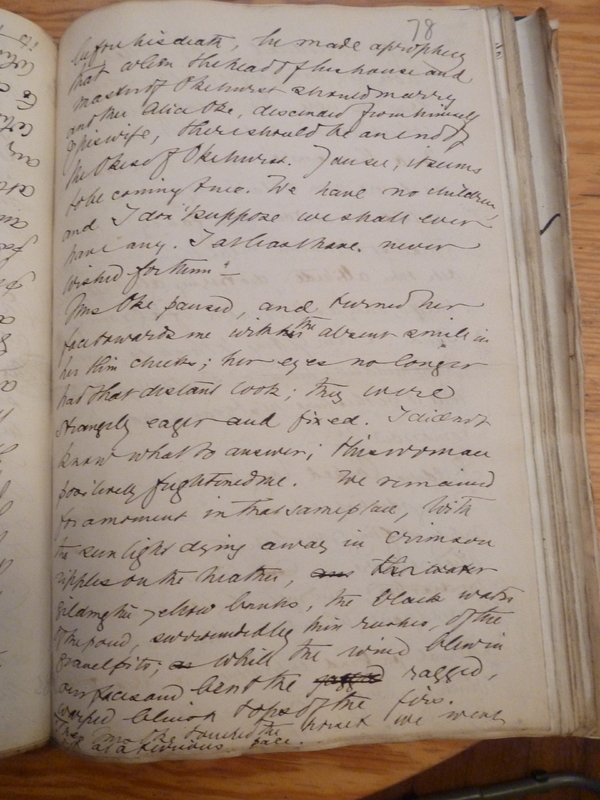 78
before his death, he made a prophecy
that when the head of his house and
master of Okehurst should marry
another Alice Oke, descended from himself
& his wife, there should be an end of
the Okes of Okehurst. You see, it seems
to be coming true. We have no children,
and I don't suppose we shall ever
have any. I at least have never
wished for them"—
Mrs Oke paused, and turned her
face towards me with the absent smile in
her thin cheeks; her eyes no longer
had that distant look; they were
strangely eager and fixed. I did not
know what to answer; this woman
positively frightened me. We remained
for a moment in that same place, with
the sunlight dying away in crimson
ripples on the heather,
gilding the yellow banks, the black waters
of the pond, surrounded by thin rushes, & the
gravel pits; while the wind blew in
our faces and bent the ragged,
warped bluish tops of the firs.
Then Mrs Oke touched the horse, & we went
off at a furious pace.